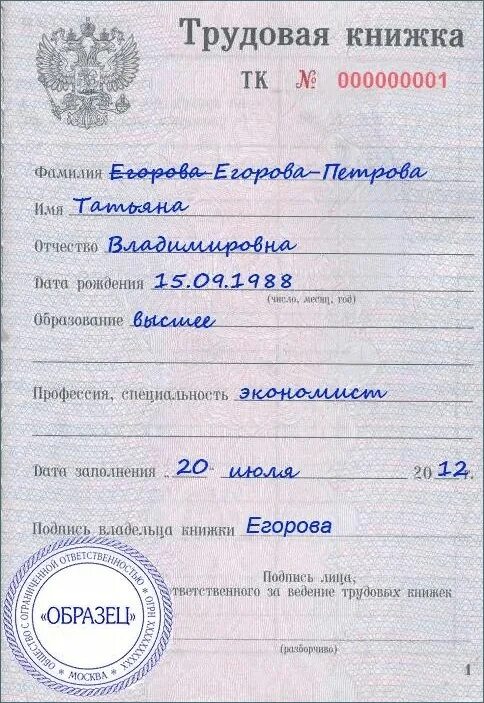 Трудовая книжка
ТК № 000000001
Фамилия Егорова Егорова-Петрова
Имя Татьяна
Отчество Владимировна
Дата рождения 15.09.1988
(число, месяц, год)
Образование высшее
Профессия, специальность экономист
Дата заполнения 20 июля 2012г.
Подпись владельца книжки Егорова
Подпись лица,
ответственного за ведение трудовых книжек
(разборчиво)
ОБЩЕСТВО С ОГРАНИЧЕННОЙ ОТВЕТСТВЕННОСТЬЮ * ОГРН XXXXXXXXX
«ОБРАЗЕЦ»
* МОСКВА *
1